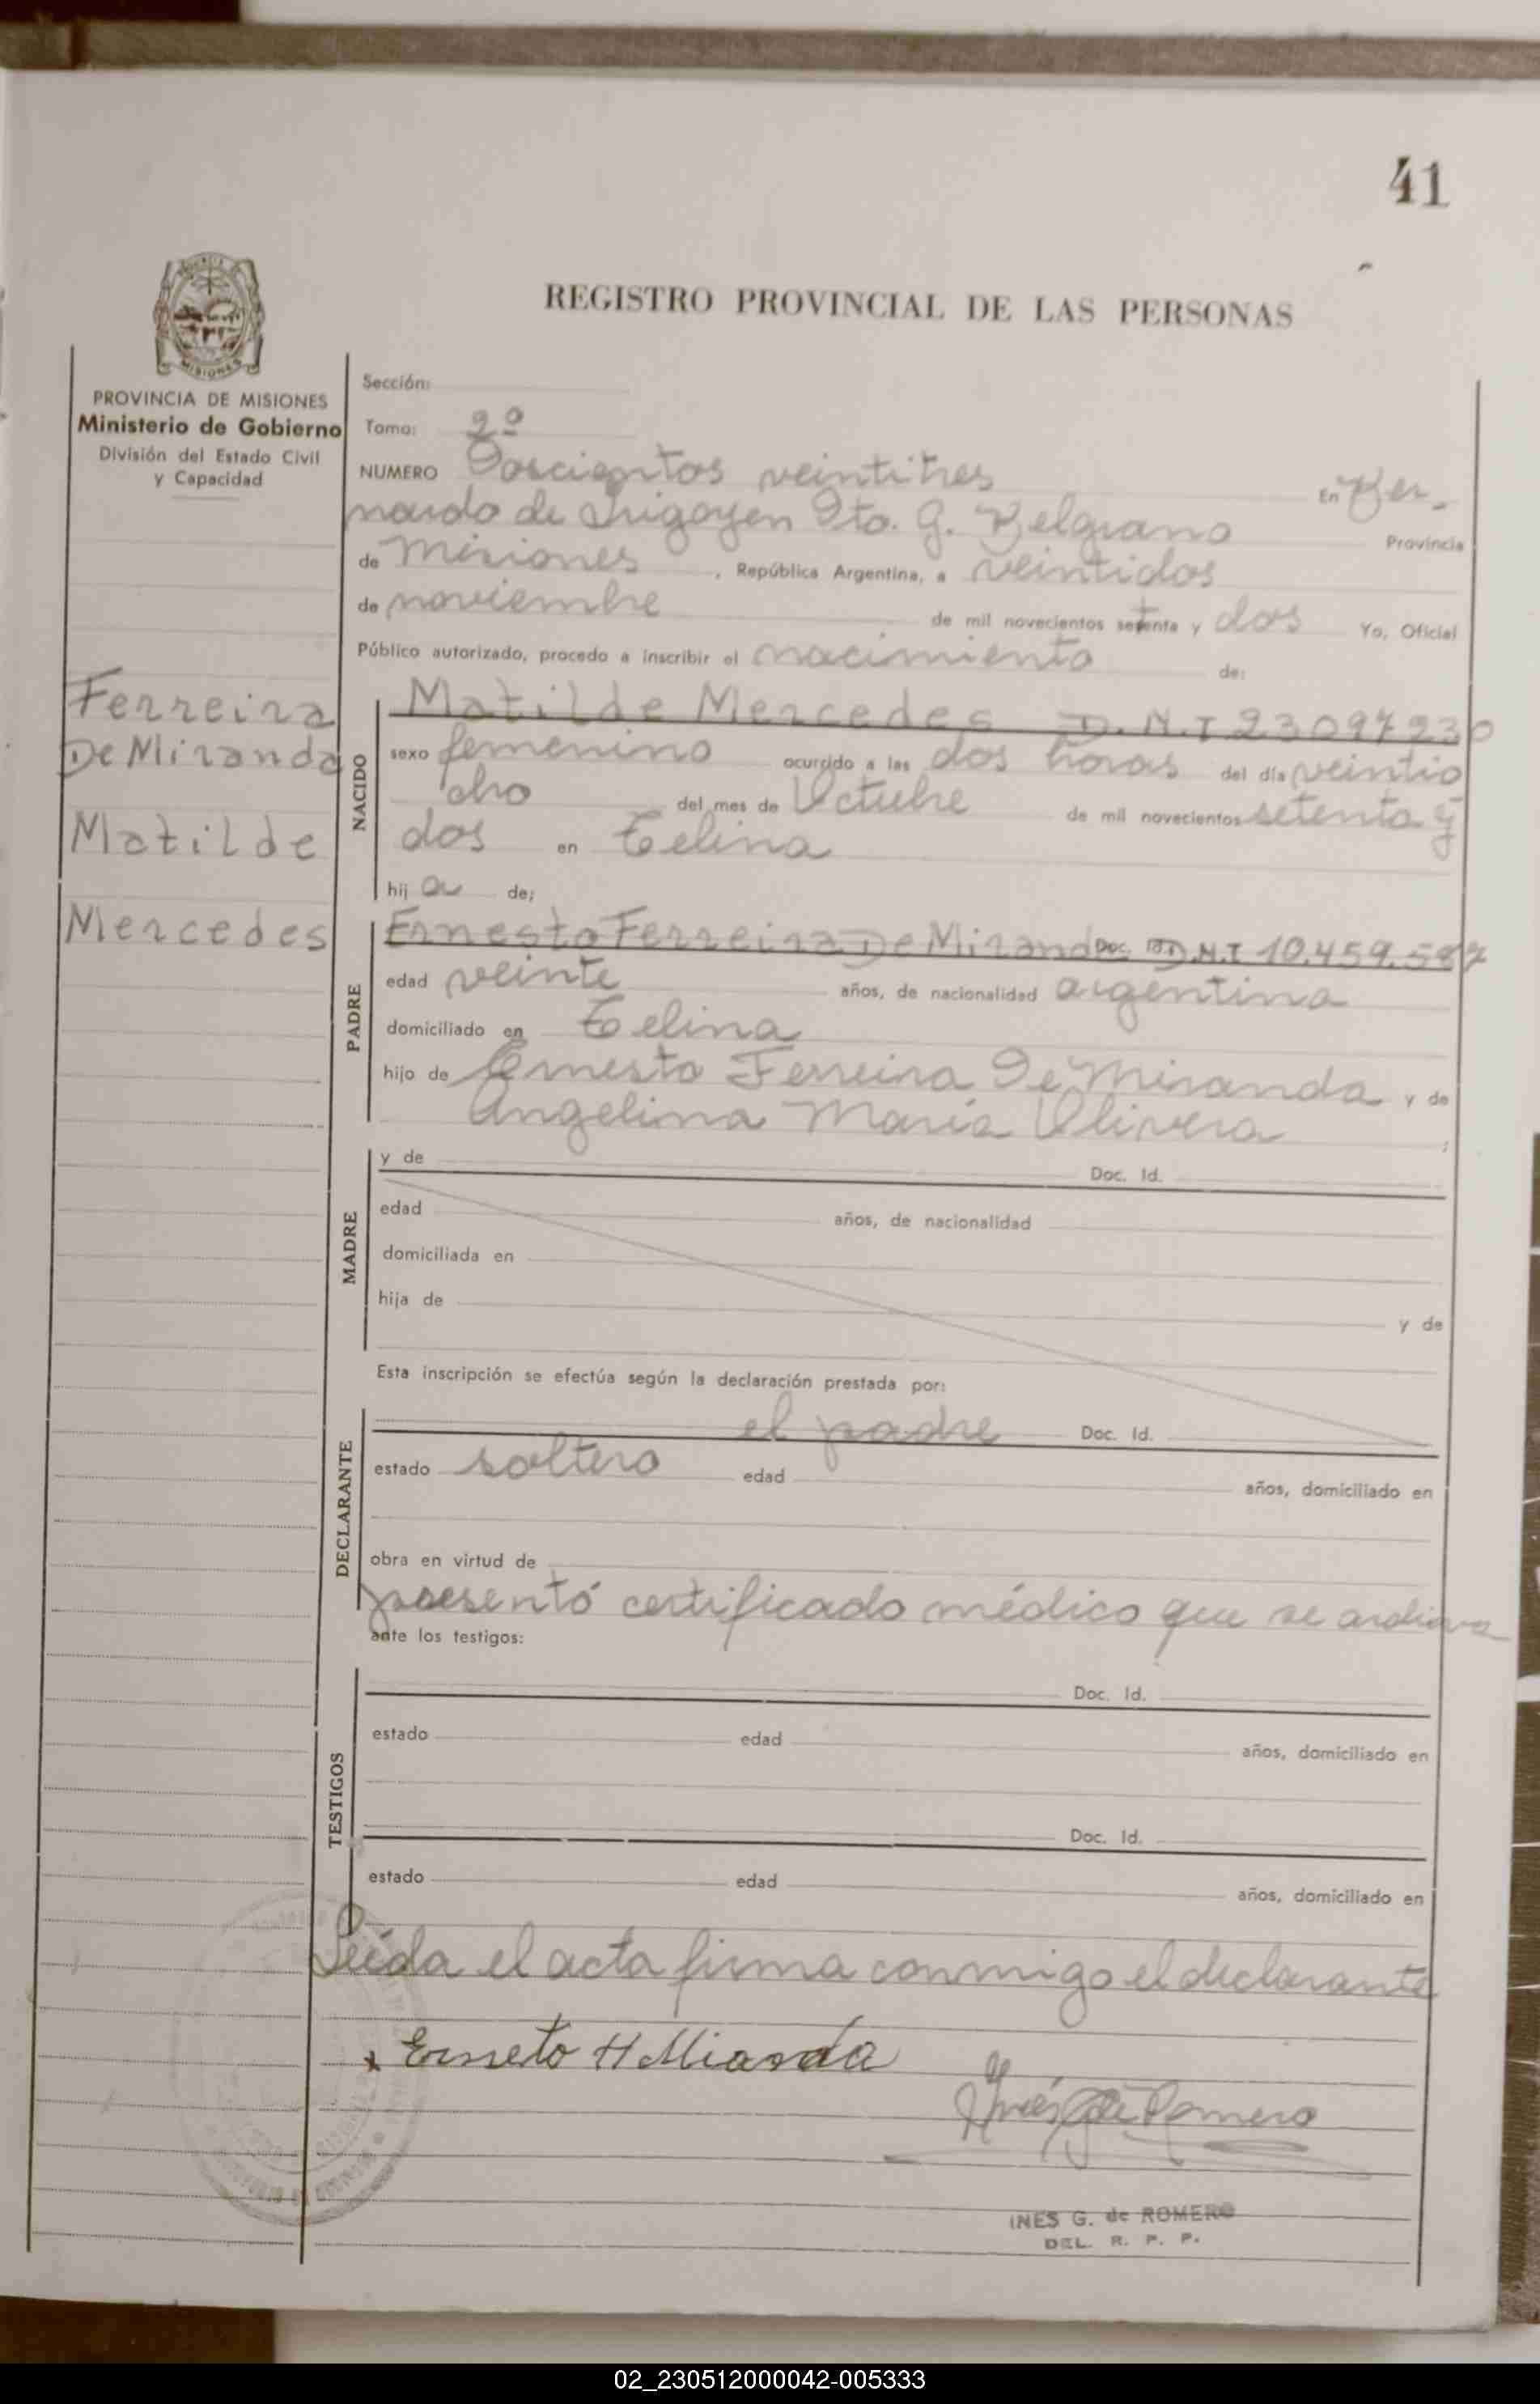 41
REGISTRO PROVINCIAL DE LAS PERSONAS
MISIONES
PROVINCIA DE MISIONES
Ministerio de Gobierno
División del Estado Civil
y Capacidad
Sección:
Tomo: 2º
NUMERO Doscientos veintitres En Ber-
nardo de Irigoyen Dto. G. Belgrano Provincia
de Misiones, República Argentina, a veintidos
de noviembre de mil novecientos setenta y dos Yo, Oficial
Público autorizado, procedo a inscribir el nacimiento de:
Ferreira
De Miranda
Matilde
Mercedes
NACIDO
Matilde Mercedes D.N.I 23097230
sexo femenino ocurrido a las dos horas del día veintio
cho del mes de Octubre de mil novecientos setenta y
dos en Telina
hij a de:
PADRE
Ernesto Ferreira De Miranda Doc. Id. D.N.I 10.459.587
edad veinte años, de nacionalidad argentina
domiciliado en Telina
hijo de Ernesto Ferreira De Miranda y de
Angelina María Olivera ;
MADRE
y de Doc. Id.
edad años, de nacionalidad
domiciliada en
hija de y de
Esta inscripción se efectúa según la declaración prestada por:
DECLARANTE
el padre Doc. Id.
estado soltero edad años, domiciliado en
obra en virtud de
presentó certificado médico que se archiva
ante los testigos:
TESTIGOS
Doc. Id.
estado edad años, domiciliado en
Doc. Id.
estado edad años, domiciliado en
Leída el acta firma conmigo el declarante
x Erneto H Miarda
Inés G de Romero
INES G. de ROMERO
DEL. R. P. P.
02_230512000042-005333